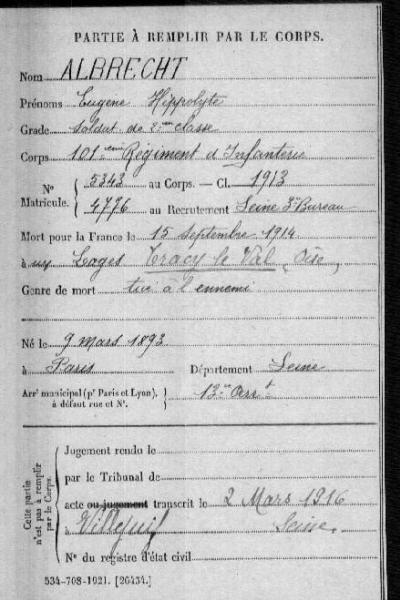 PARTIE À REMPLIR PAR LE CORPS.
Nom ALBRECHT
Prénoms Eugène Hippolyte
Grade soldat de 2ème classe
Corps 101ème Régiment d'Infanterie
N° Matricule. { 5343 au Corps. — Cl. 1913
4776 au Recrutement Seine 3e Bureau
Mort pour la France le 15 septembre 1914
à Loges Tracy le Val, Oise,
Genre de mort tué à l'ennemi
Né le 9 mars 1893
à Paris Département Seine
Arrt municipal (pr Paris et Lyon), à défaut rue et N°. } 13e Arrt
Cette partie n'est pas à remplir par le Corps.
Jugement rendu le
par le Tribunal de
acte ou jugement transcrit le 2 Mars 1916
à Villejuif Seine.
N° du registre d'état civil
534-708-1921. [26434.]